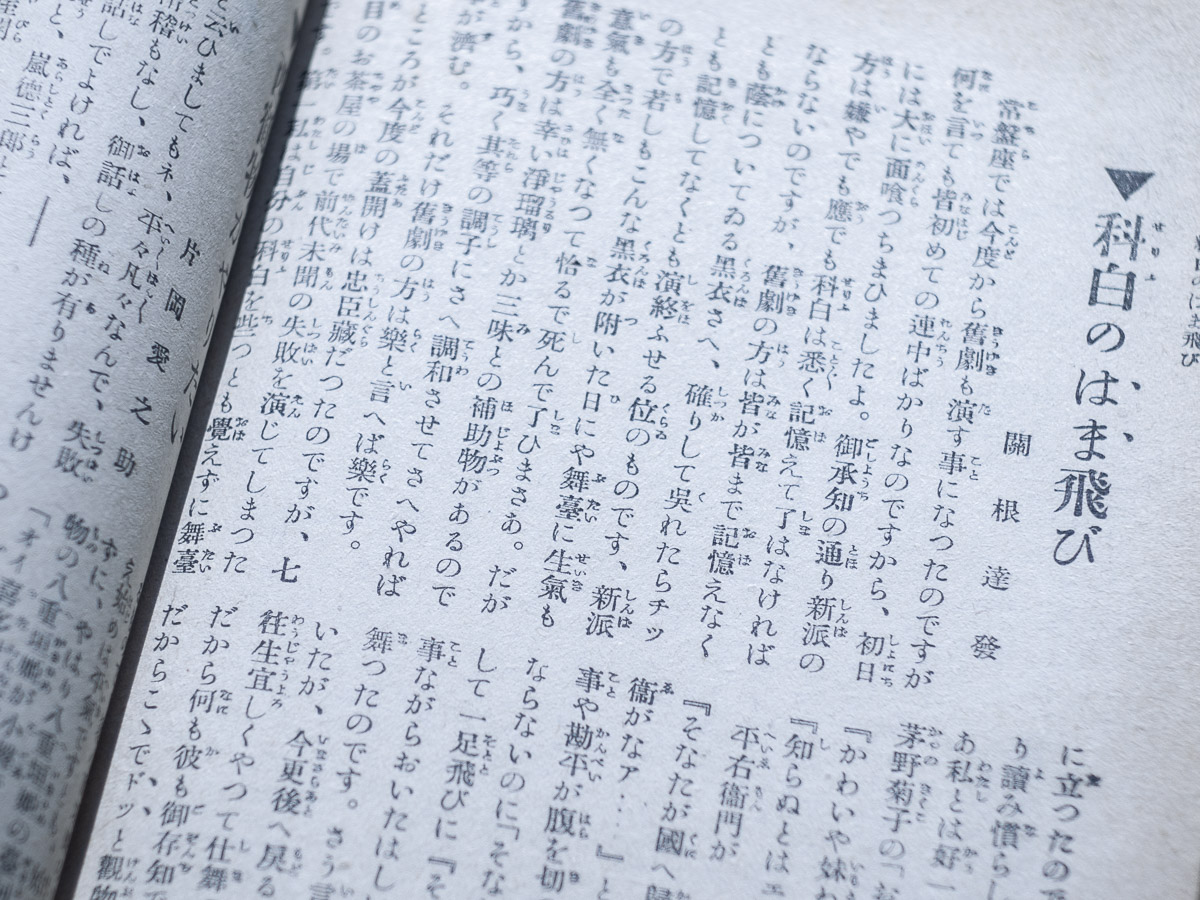 ▼科白のはま飛び
關根達發
常盤座では今度から舊劇も演す事になつたのですが
何を言ても皆初めての連中ばかりなのですから、初日
には大に面喰つちまひましたよ。御承知の通り新派の
方は嫌やでも應でも科白は悉く記憶えて了はなければ
ならないのですが、舊劇の方は皆が皆まで記憶えなく
とも蔭についてゐる黑衣さへ、確りして吳れたらチッ
とも記憶してなくとも演終ふせる位のものです、新派
の方で若しもこんな黑衣が附いた日にや舞臺に生氣も
意氣も全く無くなつて恰るで死んで了ひまさあ。だが
舊劇の方は幸い淨瑠璃とか三味との補助物があるので
すから、巧く其等の調子にさへ調和させてさへやれば
が濟む。それだけ舊劇の方は樂と言へば樂です。
ところが今度の蓋開けは忠臣藏だつたのですが、七
目のお茶屋の場で前代未聞の失敗を演じてしまつた
第一私は自分の科白を些つとも覺えずに舞臺
に立つたので
り讀み慣らし
あ私とは好一
茅野菊子の「
『かわいや妹わ
『知らぬとはエ
平右衞門が
『そなたが國へ歸
衞がなァ…』と
事や勘平が腹を切
ならないのに「そな
して一足飛びに『そ
事ながらおいたはし
舞つたのです。さう言
いたが、今更後へ戾る
往生宜しくやつて仕舞
だから何も彼も御存知で
だからこゝでドッと觀
片岡愛之助
と云ひましてもネ、平々凡々なんで、失敗
滑稽もなし、御話しの種が有りませんけ
話しでよければ、
と、嵐德三郞
ずに、やはり八重垣
物の八重垣姬が